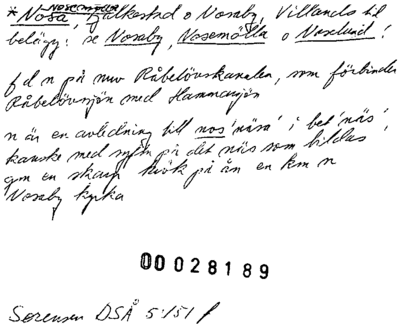 Nosemölla
* Nosa, Fjälkestad o Nosaby, Villands hd
belägg: se Nosaby, Nosemölla o Noselund!
f d n på nuv Råbelövskanalen, som förbinder
Råbelövsjön med Hammarsjön
n är en avledning till nos 'näsa' i bet 'näs',
kanske med syftn på det näs som bildas
gm en skarp krök på ån en km n
Nosaby kyrka
00028189
Sørensen DSÅ 5:151 f